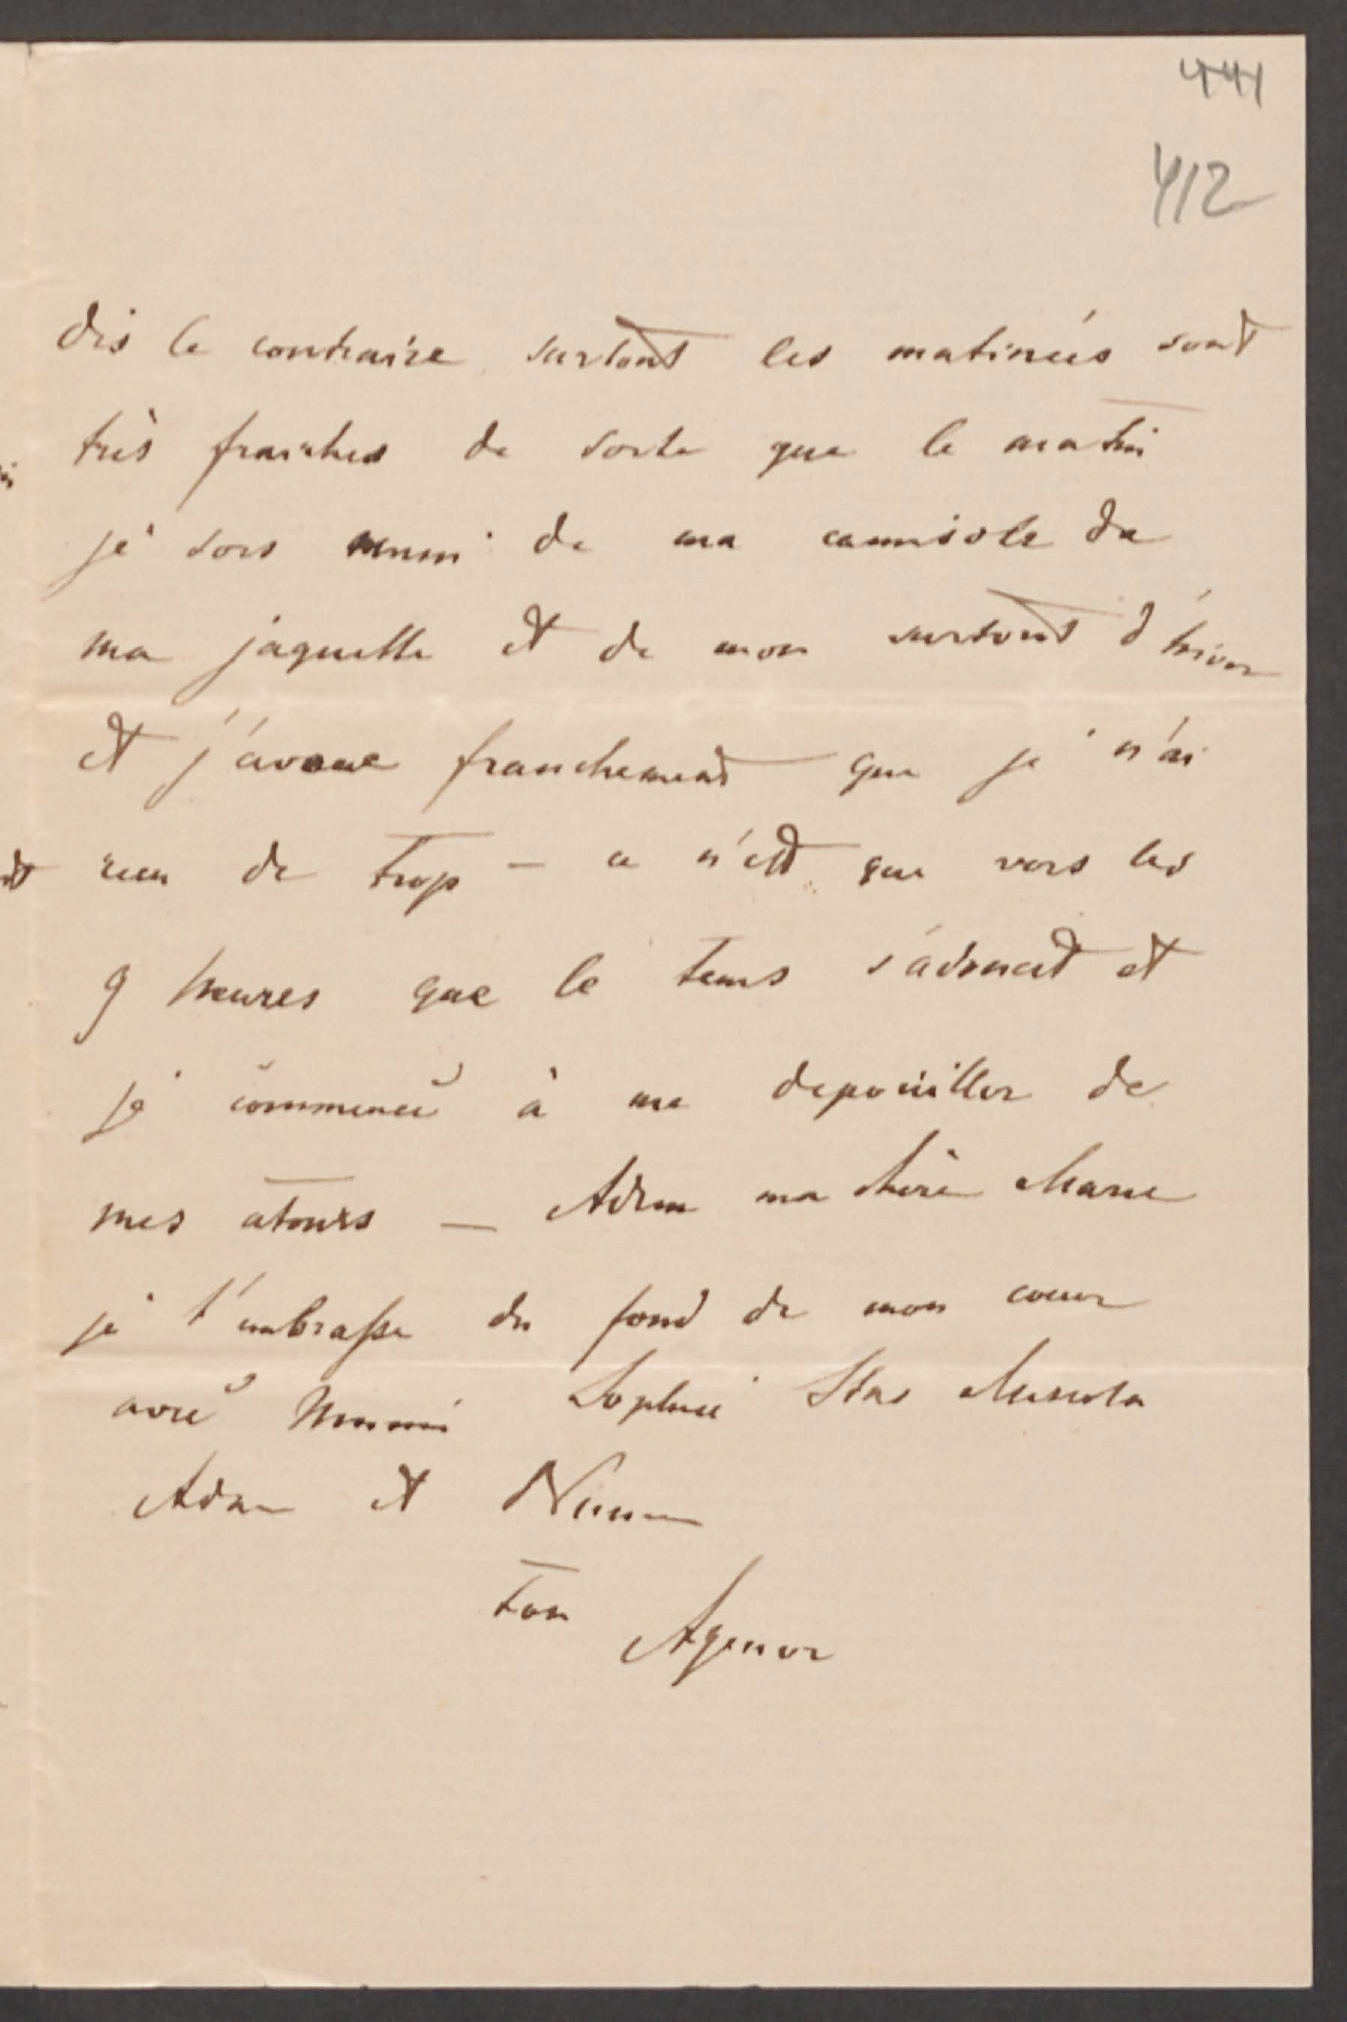 441
412
dis le contraire surtout les matinées sont
très fraiches de sorte que le matin
je sors muni de ma camisole de
ma jaquette et de mon surtout d'hiver
et j'avoue franchement que je n'ai
rien de trop – ce n'est que vers les
9 heures que le tems s'adoucit et
je commence à me depouiller de
mes atours – Adieu ma chère Marie
je t'embrasse du fond de mon coeur
avec Mimi Sophie Stas
Adam et
ton Agenor